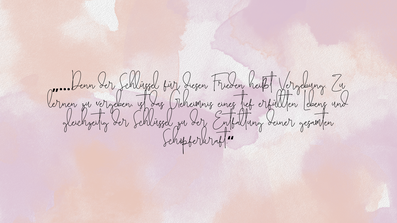 „...Denn der Schlüssel für diesen Frieden heißt Vergebung. Zu
lernen zu vergeben, ist das Geheimnis eines tief erfüllten Lebens und
gleichzeitig der Schlüssel zu der Entfaltung deiner gesamten
Schöpferkraft“